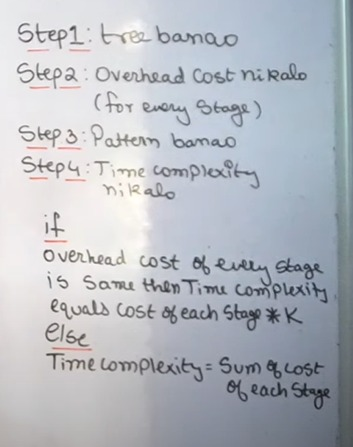 Step1: tree banao
Step2: Overhead Cost nikalo
(for every Stage)
Step3: Pattern banao
Step4: Time complexity
nikalo
if
overhead cost of every stage
is Same then Time complexity
equals cost of each Stage * K
else
Time complexity = Sum of cost
of each Stage